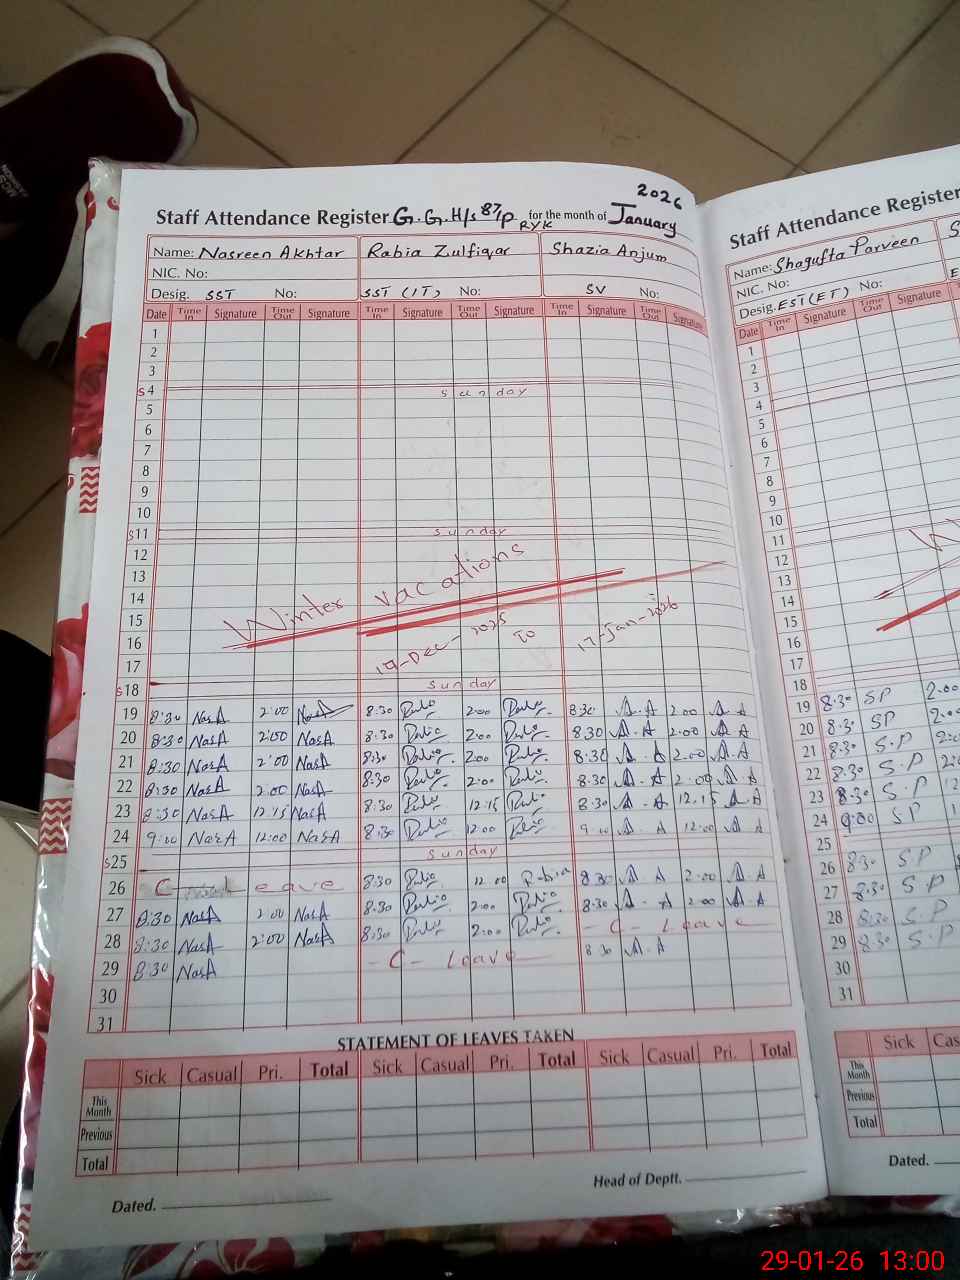 2026
Staff Attendance Register G.G.H/s 87/P RYK for the month of January
Name: Nasreen Akhtar Rabia Zulfiqar Shazia Anjum
NIC. No:
Desig. SST No: SST (IT) No: SV No:
Date Time In Signature Time Out Signature Time In Signature Time Out Signature Time In Signature Time Out Signature
1
2
3
S 4 Sunday
5
6
7
8
9
10
S 11 Sunday
12
13
14
15
16
17
Winter vacations
19-Dec-2025 To 17-Jan-2026
S 18 Sunday
19 8:30 NasA 2:00 NasA 8:30 2:00 8:30 A.A 2:00 A.A
20 8:30 NasA 2:00 NasA 8:30 2:00 8:30 A.A 2:00 A.A
21 8:30 NasA 2:00 NasA 8:30 2:00 8:30 A.A 2:00 A.A
22 8:30 NasA 2:00 NasA 8:30 2:00 8:30 A.A 2:00 A.A
23 8:30 NasA 12:15 NasA 8:30 12:15 8:30 A.A 12.15 A.A
24 9:00 NasA 12:00 NasA 8:30 12:00 9:00 A.A 12:00 A.A
S 25 Sunday
26 C eave 8:30 12:00 Rabia 8:30 A.A 2:00 A.A
27 8:30 NasA 2:00 NasA 8:30 2:00 8:30 A.A 2:00 A.A
28 8:30 NasA 2:00 NasA 8:30 2:00 - C - Leave
29 8:30 NasA - C - Leave 8:30 A.A
30
31
STATEMENT OF LEAVES TAKEN
Sick Casual Pri. Total Sick Casual Pri. Total Sick Casual Pri. Total
This Month
Previous
Total
Dated. Head of Deptt.
Staff Attendance Register
Name: Shagufta Parveen
NIC. No:
Desig. EST(ET) No:
Date Time In Signature Time Out Signature Time In
1
2
3
4
5
6
7
8
9
10
11
12
13
14
15
16
17
18
19 8:30 SP 2:00
20 8:30 SP 2:00
21 8:30 S.P 2:00
22 8:30 S.P
23 8:30 S.P 12
24 9:00 SP 1
25
26 8:30 S.P
27 8:30 S.P
28 8:30 S.P
29 8:30 S.P
30
31
Sick Cas
This Month
Previous
Total
Dated.
29-01-26 13:00